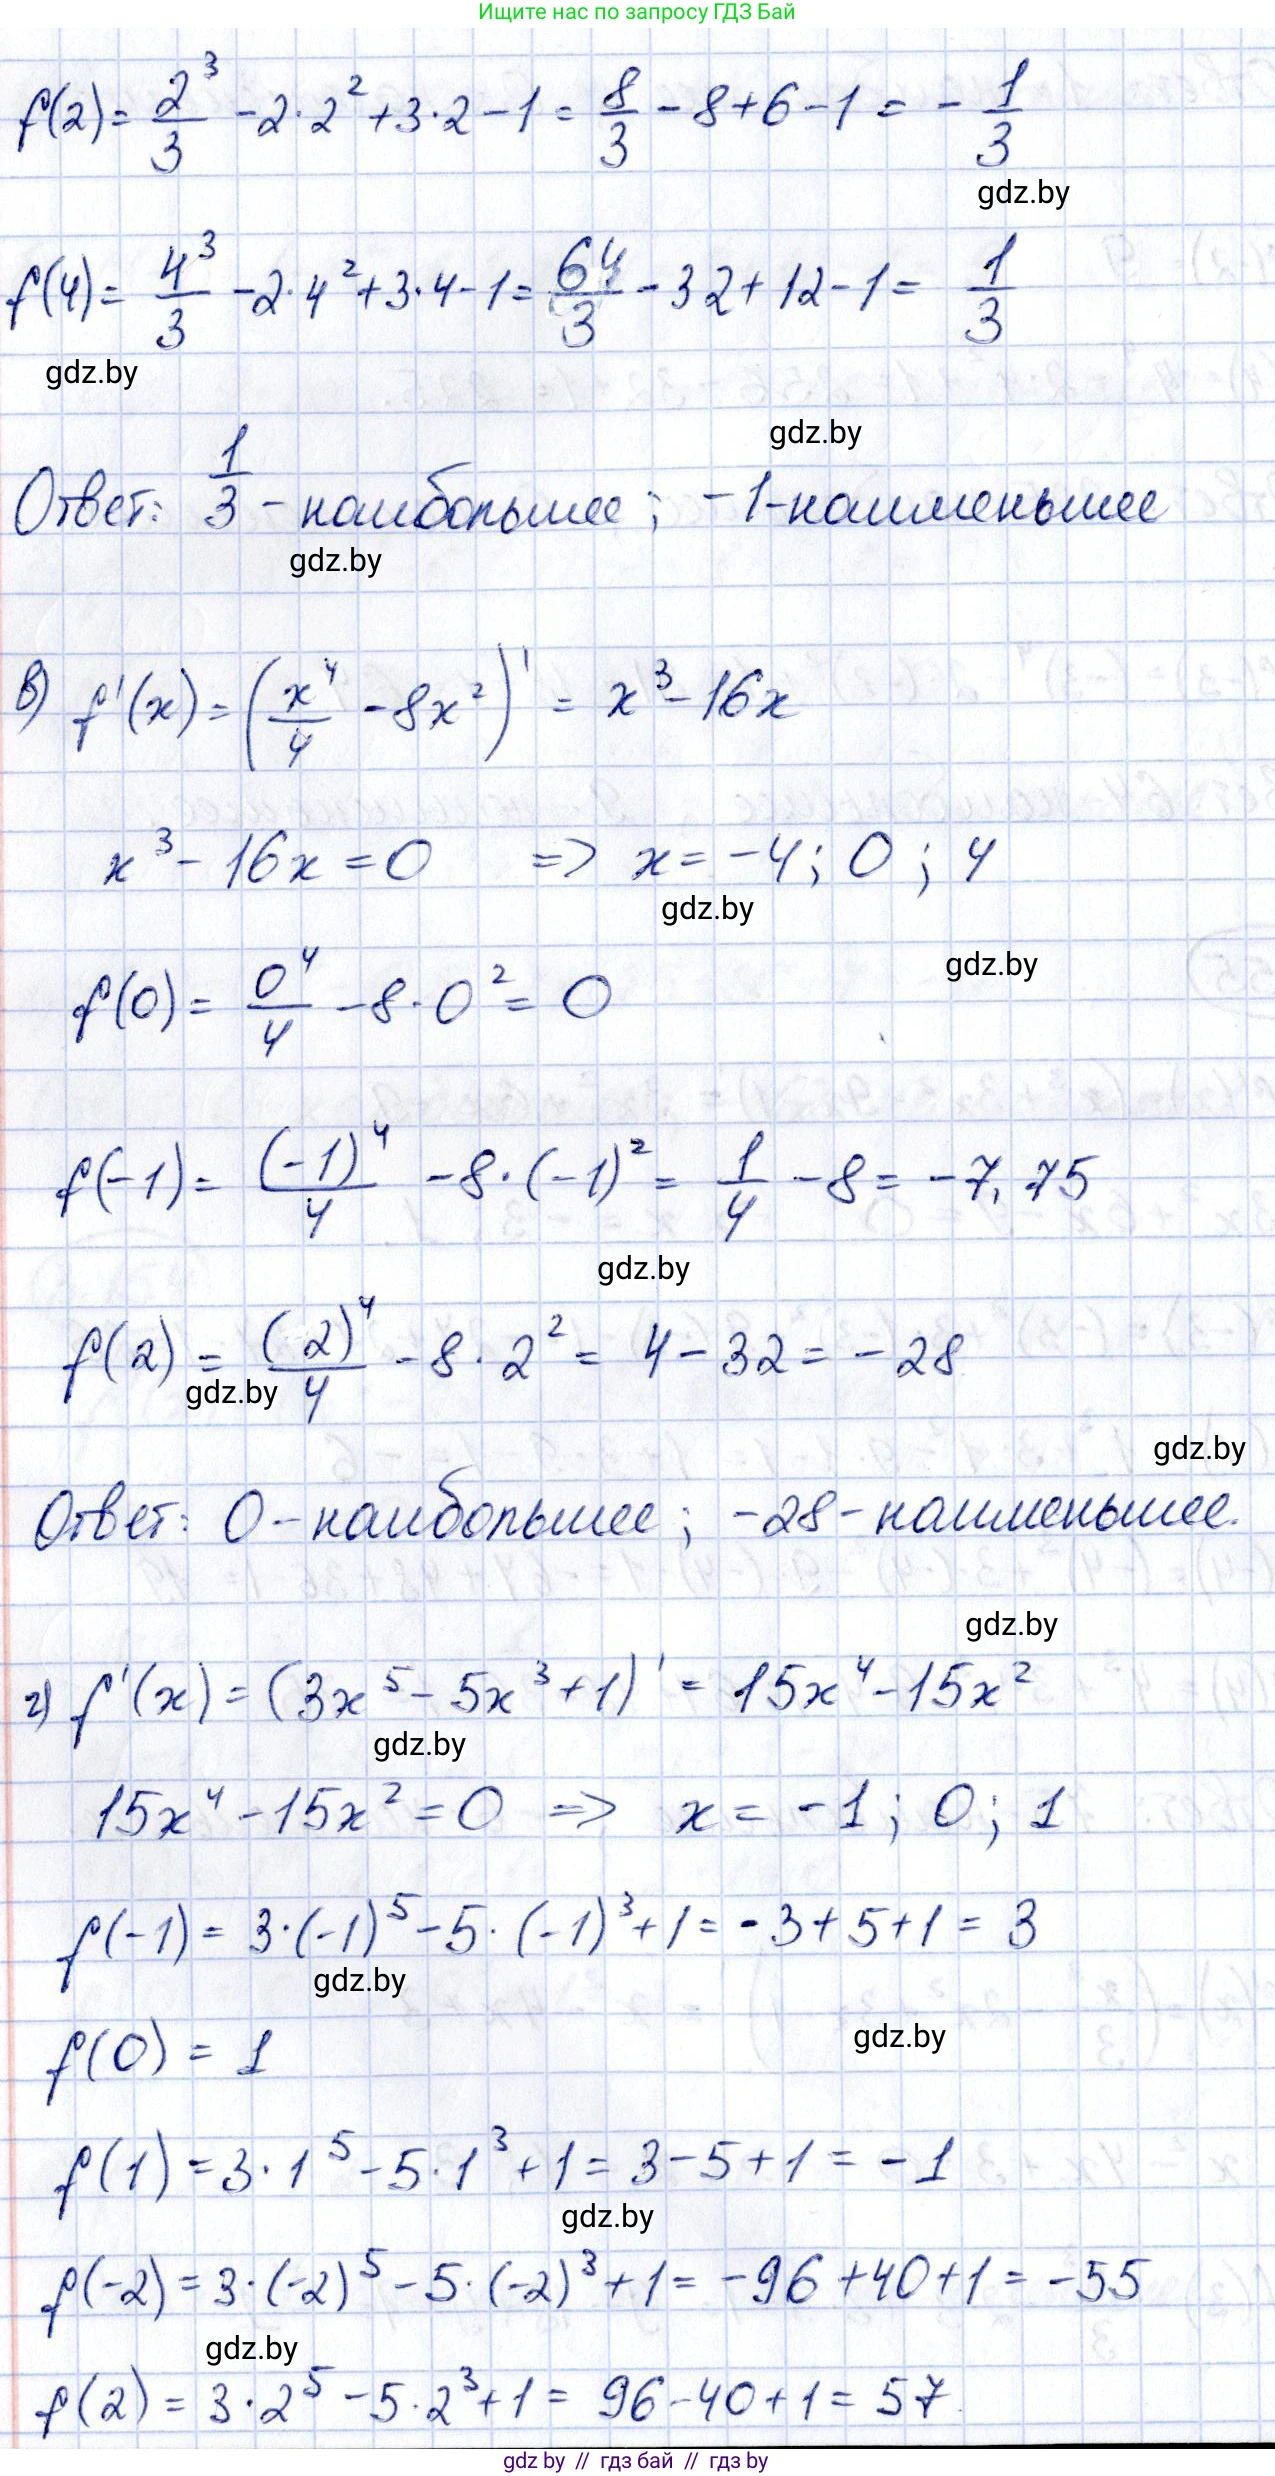 Ищите нас по запросу ГДЗ Бай
f(2) = 2³/3 - 2·2² + 3·2 - 1 = 8/3 - 8 + 6 - 1 = - 1/3
gdz.by
f(4) = 4³/3 - 2·4² + 3·4 - 1 = 64/3 - 32 + 12 - 1 = 1/3
gdz.by
gdz.by
Ответ: 1/3 - наибольшее; -1 - наименьшее
gdz.by
в) f'(x) = (x⁴/4 - 8x²)' = x³ - 16x
x³ - 16x = 0 => x = -4; 0; 4
gdz.by
gdz.by
f(0) = 0⁴/4 - 8·0² = 0
f(-1) = (-1)⁴/4 - 8·(-1)² = 1/4 - 8 = -7,75
gdz.by
f(2) = (2)⁴/4 - 8·2² = 4 - 32 = -28
gdz.by
gdz.by
Ответ: 0 - наибольшее; -28 - наименьшее.
gdz.by
г) f'(x) = (3x⁵ - 5x³ + 1)' = 15x⁴ - 15x²
gdz.by
15x⁴ - 15x² = 0 => x = -1; 0; 1
f(-1) = 3·(-1)⁵ - 5·(-1)³ + 1 = -3 + 5 + 1 = 3
gdz.by
f(0) = 1
gdz.by
f(1) = 3·1⁵ - 5·1³ + 1 = 3 - 5 + 1 = -1
gdz.by
f(-2) = 3·(-2)⁵ - 5·(-2)³ + 1 = -96 + 40 + 1 = -55
gdz.by
f(2) = 3·2⁵ - 5·2³ + 1 = 96 - 40 + 1 = 57
gdz by // гдз бай // гдз by